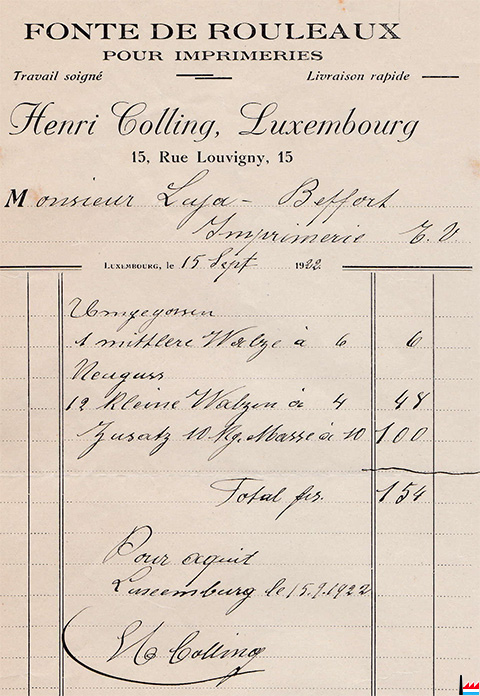 FONTE DE ROULEAUX
POUR IMPRIMERIES
Travail soigné Livraison rapide
Henri Colling, Luxembourg
15, Rue Louvigny, 15
Monsieur Luja - Beffort
Imprimerie E. V.
LUXEMBOURG, le 15 Sept 1922.
Umgegossen
1 mittlere Walze à 6 6
Neuguss
12 kleine Walzen à 4 48
Zusatz 10 kg. Masse à 10 100
Total frs. 154
Pour acquit
Luxemburg le 15.9.1922
H Colling